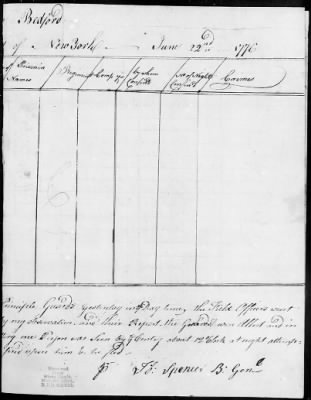 Bedford
of New York June 22nd 1776
of Prisoners Names Regiment Comp'y by whom Confin'd Crimes
Principle Guards yesterday in day time, the Field Officers went
by my observation, and their Report, the Guards were Alert and in
one Person was Seen by Centry about 12 Clock at night
upon him & he fled
Js. Spencer B. Genl